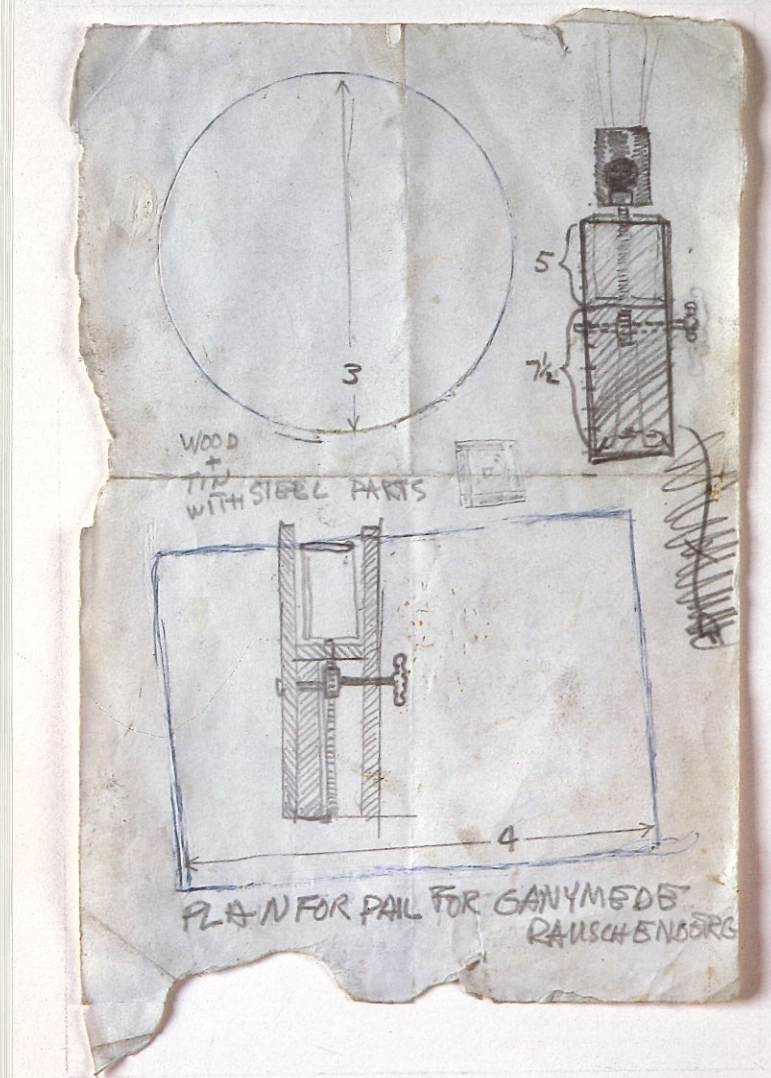 5
3
7½
WOOD
+
TIN
WITH STEEL PARTS
4
PLAN FOR PAIL FOR GANYMEDE
RAUSCHENBERG